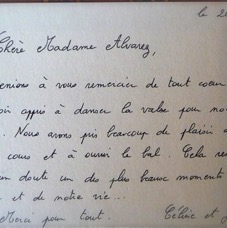 le 2
Chère Madame Alvarez,
enions à vous remercier de tout coeur
oir appris à danser la valse pour no
. Nous avons pris beaucoup de plaisir à
cours et à ouvrir le bal. Cela res
un doute un des plus beaux moments
et de notre vie...
Merci pour tout. Céline et J